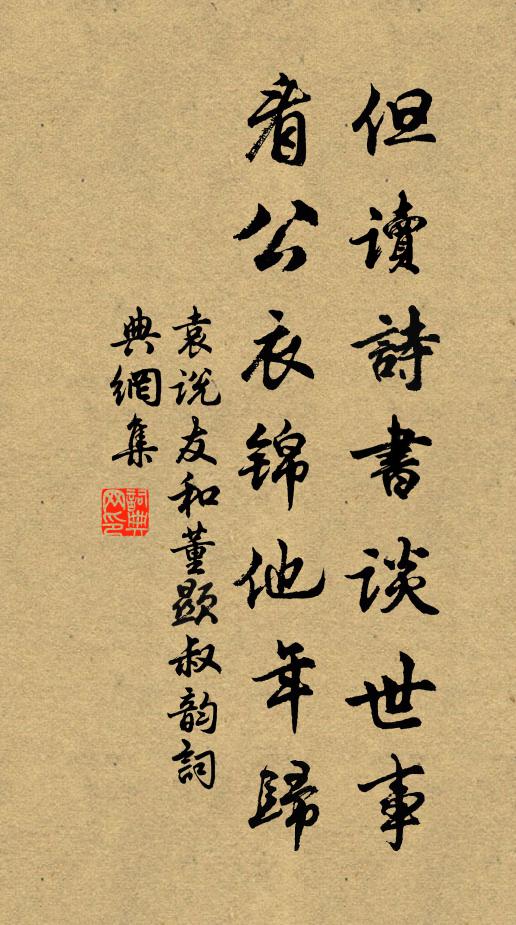 但讀詩書談世事
看公衣錦他年歸
袁说友和董顯叔韵詞
典網集
詞典
网印